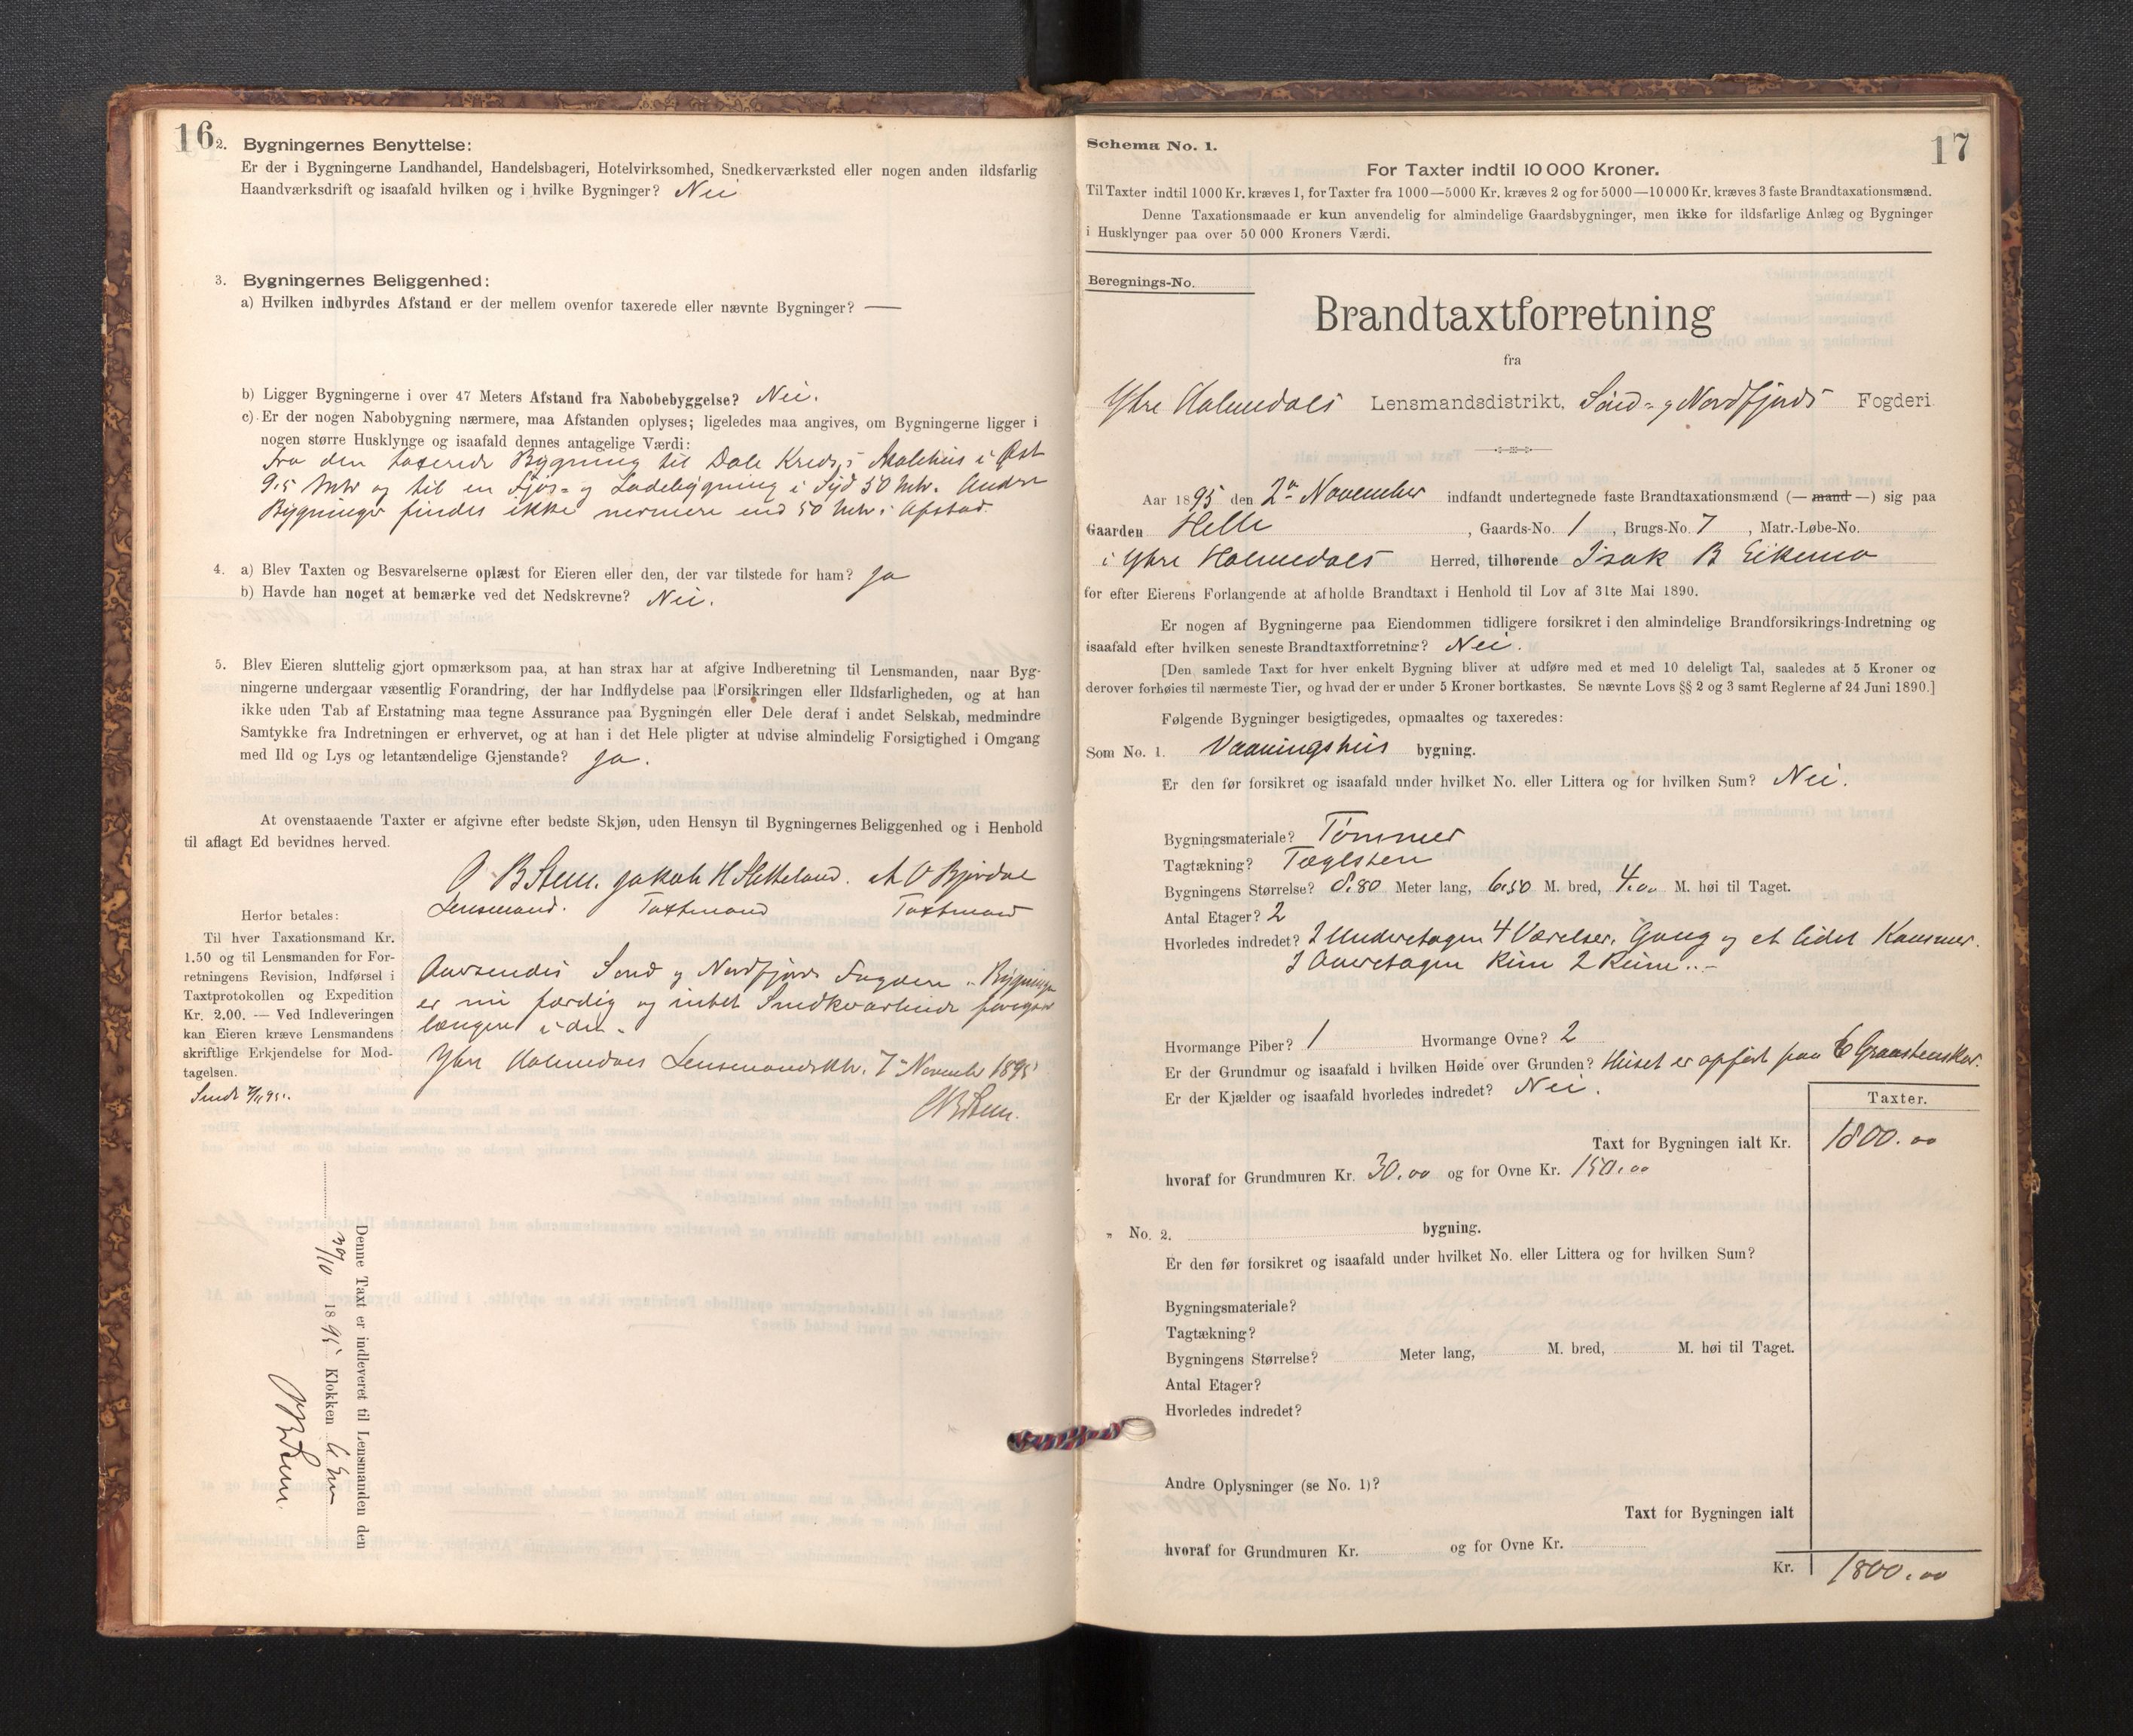 16
2. Bygningernes Benyttelse:
Er der i Bygningerne Landhandel, Handelsbageri, Hotelvirksomhed, Snedkerværksted eller nogen anden ildsfarlig
Haandværksdrift og isaafald hvilken og i hvilke Bygninger? Nei
3. Bygningernes Beliggenhed:
a) Hvilken indbyrdes Afstand er der mellem ovenfor taxerede eller nævnte Bygninger? —
b) Ligger Bygningerne i over 47 Meters Afstand fra Nabobebyggelse? Nei.
c) Er der nogen Nabobygning nærmere, maa Afstanden oplyses; ligeledes maa angives, om Bygningerne ligger i
nogen større Husklynge og isaafald dennes antagelige Værdi:
Fra den taxerede Bygning til Dale Kreds's Skolehus i Øst
9.5 Mtr og til en Fjøs- og Ladebygning i Syd 30 Mtr. Andre
Bygninger findes ikke nermere end 50 Mtr. i Afstad.
4. a) Blev Taxten og Besvarelserne oplæst for Eieren eller den, der var tilstede for ham? Ja
b) Havde han noget at bemærke ved det Nedskrevne? Nei.
5. Blev Eieren sluttelig gjort opmærksom paa, at han strax har at afgive Indberetning til Lensmanden, naar Byg-
ningerne undergaar væsentlig Forandring, der har Indflydelse paa Forsikringen eller Ildsfarligheden, og at han
ikke uden Tab af Erstatning maa tegne Assurance paa Bygningen eller Dele deraf i andet Selskab, medmindre
Samtykke fra Indretningen er erhvervet, og at han i det Hele pligter at udvise almindelig Forsigtighed i Omgang
med Ild og Lys og letantændelige Gjenstande? Ja.
At ovenstaaende Taxter er afgivne efter bedste Skjøn, uden Hensyn til Bygningernes Beliggenhed og i Henhold
til aflagt Ed bevidnes herved.
Jakob H A O Bjordal
Lensmand. Taxtmand Taxtmand
Herfor betales:
Til hver Taxationsmand Kr.
1.50 og til Lensmanden for For-
retningens Revision, Indførsel i
Taxtprotokollen og Expedition
Kr. 2.00. — Ved Indleveringen
kan Eieren kræve Lensmandens
skriftlige Erkjendelse for Mod-
tagelsen.
Sendt 7/11 95.
Oversendes Sønd og Nordfjords Fogderi. Bygningen
er nu færdig og intet Snedkerarbeide foregaar
længere i den.
Ytre Holmedals Lensmandskt. 7 November 1895
Denne Taxt er indleveret til Lensmanden den
30/10 1895 Klokken 6 Em
Schema No. 1.
17
For Taxter indtil 10 000 Kroner.
Til Taxter indtil 1000 Kr. kræves 1, for Taxter fra 1000—5000 Kr. kræves 2 og for 5000—10 000 Kr. kræves 3 faste Brandtaxationsmænd.
Denne Taxationsmaade er kun anvendelig for almindelige Gaardsbygninger, men ikke for ildsfarlige Anlæg og Bygninger
i Husklynger paa over 50 000 Kroners Værdi.
Beregnings-No.
Brandtaxtforretning
fra
Ytre Holmedals Lensmandsdistrikt, Sønd- og Nordfjords Fogderi
Aar 1895 den 2den November indfandt undertegnede faste Brandtaxationsmænd (— mand —) sig paa
Gaarden Helle, Gaards-No. 1, Brugs-No. 7, Matr.-Løbe-No.
i Ytre Holmedals Herred, tilhørende Isak B Eikemo
for efter Eierens Forlangende at afholde Brandtaxt i Henhold til Lov af 31te Mai 1890.
Er nogen af Bygningerne paa Eiendommen tidligere forsikret i den almindelige Brandforsikrings-Indretning og
isaafald efter hvilken seneste Brandtaxtforretning? Nei.
[Den samlede Taxt for hver enkelt Bygning bliver at udføre med et med 10 deleligt Tal, saaledes at 5 Kroner og
derover forhøies til nærmeste Tier, og hvad der er under 5 Kroner bortkastes. Se nævnte Lovs §§ 2 og 3 samt Reglerne af 24 Juni 1890.]
Følgende Bygninger besigtigedes, opmaaltes og taxeredes:
Som No. 1. Vaaningshus bygning.
Er den før forsikret og isaafald under hvilket No. eller Littera og for hvilken Sum? Nei.
Bygningsmateriale? Tømmer
Tagtækning? Tæglsten
Bygningens Størrelse? 8.80 Meter lang, 6.50 M. bred, 4.00 M. høi til Taget.
Antal Etager? 2
Hvorledes indredet? I Underetagen 4 Værelser, Gang og et lidet Kammer.
I Overetagen kun 2 Rum..-
Hvormange Piber? 1 Hvormange Ovne? 2
Er der Grundmur og isaafald i hvilken Høide over Grunden? Huset er opført paa 6 Graastenskar.
Er der Kjælder og isaafald hvorledes indredet? Nei.
Taxter.
Taxt for Bygningen ialt Kr. 1800.00
hvoraf for Grundmuren Kr. 30.00 og for Ovne Kr. 150.00
„ No. 2. bygning.
Er den før forsikret og isaafald under hvilket No. eller Littera og for hvilken Sum?
Bygningsmateriale?
Tagtækning?
Bygningens Størrelse? Meter lang, M. bred, M. høi til Taget.
Antal Etager?
Hvorledes indredet?
Andre Oplysninger (se No. 1)?
Taxt for Bygningen ialt
hvoraf for Grundmuren Kr. og for Ovne Kr.
Kr. 1800.00